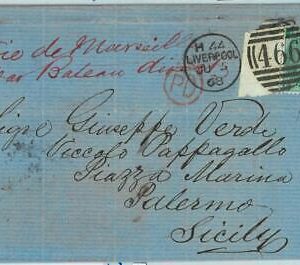 Voie de Marseille
par Bateau direct
PD
H 44
LIVERPOOL
JU 5
68
466
Signr Giuseppe Verde
Viccolo Pappagallo
Piazza Marina
Palermo
Sicily